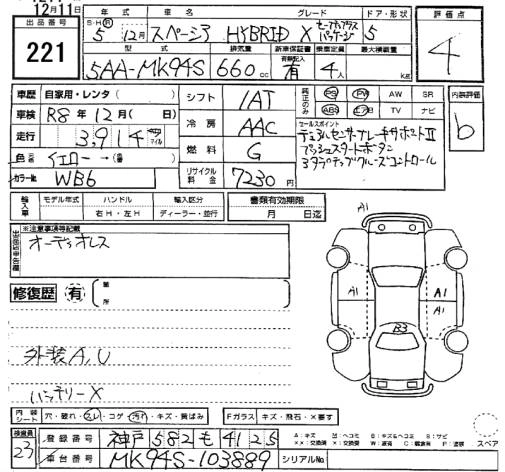 12月11日
出品番号
221
年式 車名 グレード ドア・形状
S・H・R 5年 12月 スペーシア HYBRID X セーフティプラスパッケージ 5
型式 排気量 新車保証書 乗車定員 最大積載量
5AA-MK94S 660cc 有 4人 kg
評価点
4
車歴 自家用・レンタ( )
車検 R8年12月( 日)
走行 3,914
色 イエロー→( )
カラーNo. WB6
シフト IAT
冷房 AAC
燃料 G
リサイクル料金 7230円
純正のみ PS PW AW SR
ABS エアB TV ナビ
内装評価
b
セールスポイント
デュアルセンサーブレーキサポートⅡ
プッシュスタートボタン
アダプティブクルーズコントロール
輸入車 モデル年式 ハンドル 輸入区分
右H・左H ディーラー・並行
書類有効期限
月 日迄
※注意事項等記載
オーディオレス
修復歴 有 箇所
外装A,U
バッテリーX
A1
A1
A1
B3
内装シート 穴・破れ・スレ・コゲ・汚れ・キズ・黄ばみ
Fガラス キズ・飛石・X要す
検査員
23
登録番号 神戸 582 も 4125
車台番号 MK94S-103889
シリアルNo.
A:キズ U:ヘコミ B:キズ&ヘコミ S:サビ
スペア